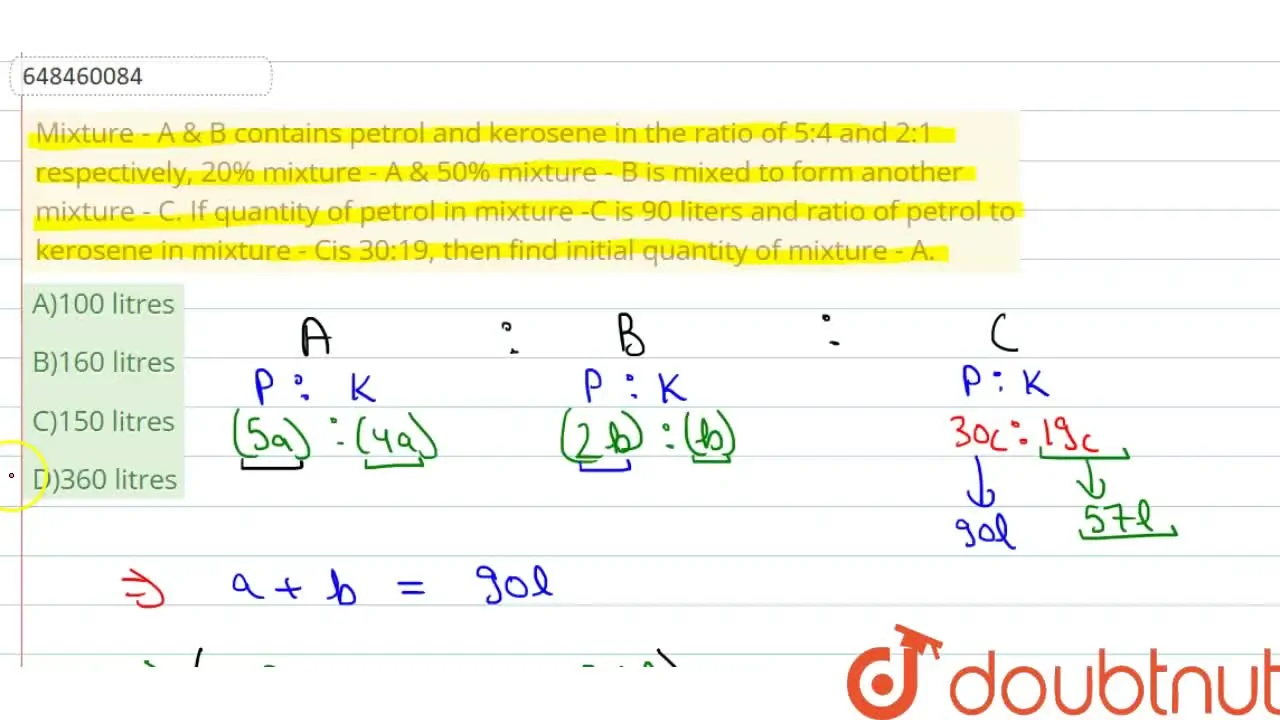 648460084
Mixture - A & B contains petrol and kerosene in the ratio of 5:4 and 2:1
respectively, 20% mixture - A & 50% mixture - B is mixed to form another
mixture - C. If quantity of petrol in mixture -C is 90 liters and ratio of petrol to
kerosene in mixture - Cis 30:19, then find initial quantity of mixture - A.
A)100 litres
B)160 litres
C)150 litres
D)360 litres
A : B : C
P : K P : K P : K
(5a) : (4a) (2b) : (b) 30c : 19c
90l 57l
⇒ a + b = 90l
doubtnut